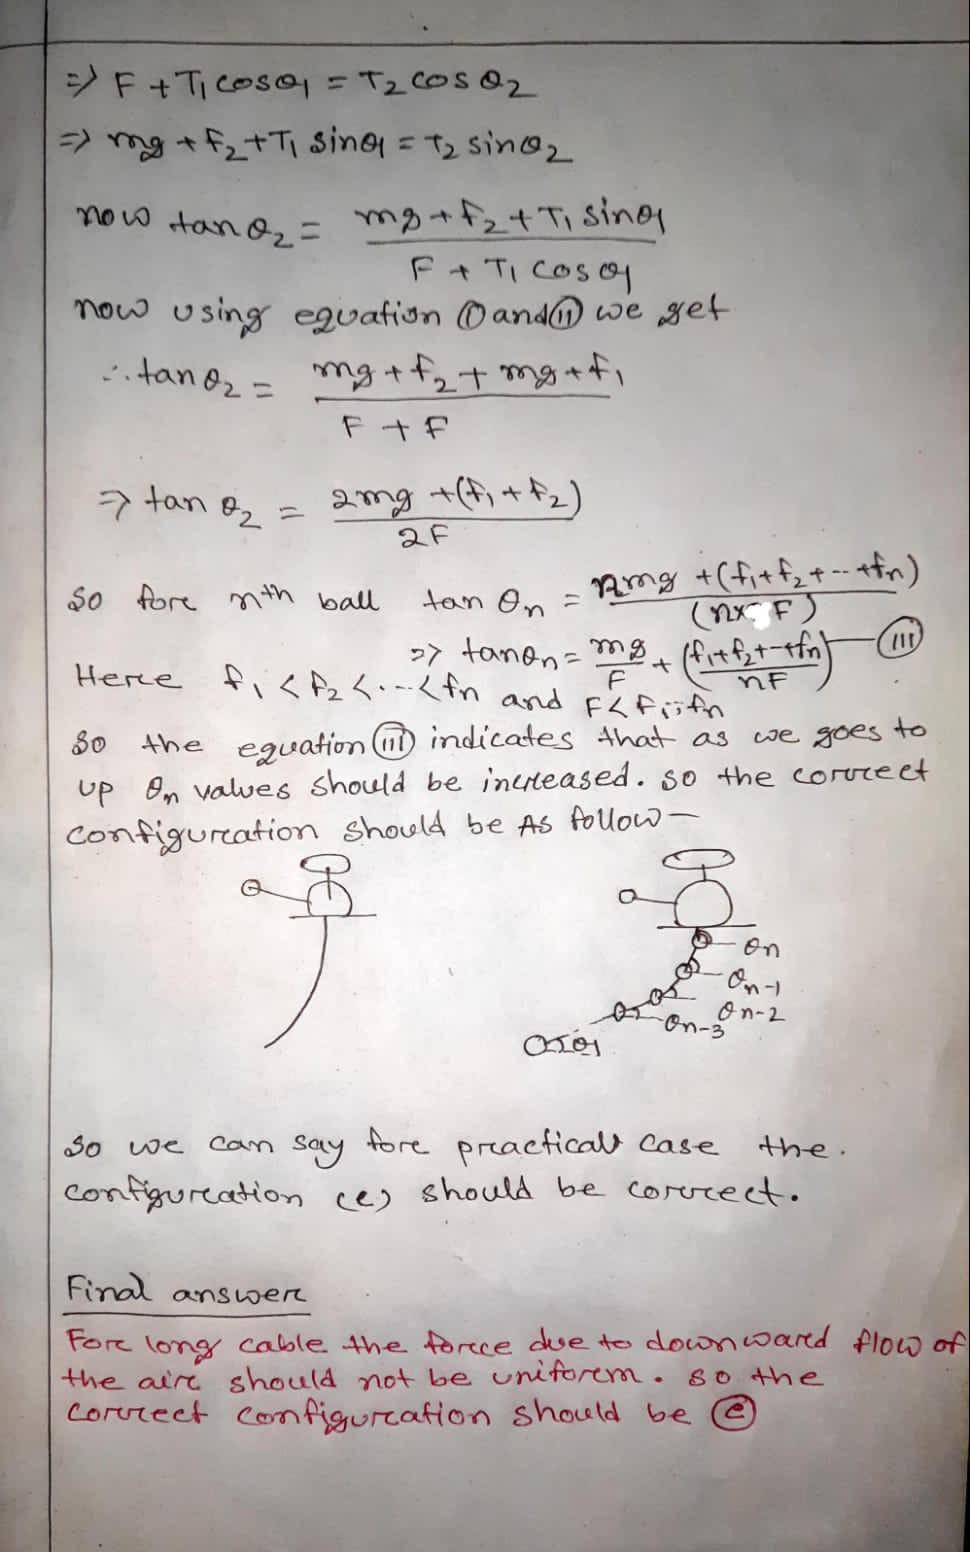 => F + T₁ cosθ₁ = T₂ cos θ₂
=> mg + f₂ + T₁ sinθ₁ = T₂ sinθ₂
now tan θ₂ = (mg + f₂ + T₁ sinθ₁) / (F + T₁ cosθ₁)
now using equation (i) and (ii) we get
∴ tan θ₂ = (mg + f₂ + mg + f₁) / (F + F)
=> tan θ₂ = (2mg + (f₁ + f₂)) / 2F
So fore nth ball tan θn = (nmg + (f₁ + f₂ + -- + fn)) / (n× F)
=> tanθn = mg/F + (f₁+f₂+--+fn)/nF — (iii)
Here f₁ < f₂ < ... < fn and F<
So the equation (iii) indicates that as we goes to
up θn values should be increased. so the correct
configuration should be As follow —
θn
θn-1
θn-2
θn-3
θ₁
So we can say fore practical case the.
configuration (e) should be correct.
Final answer
Fore long cable the force due to downward flow of
the aire should not be uniform. so the
correct configuration should be (e)